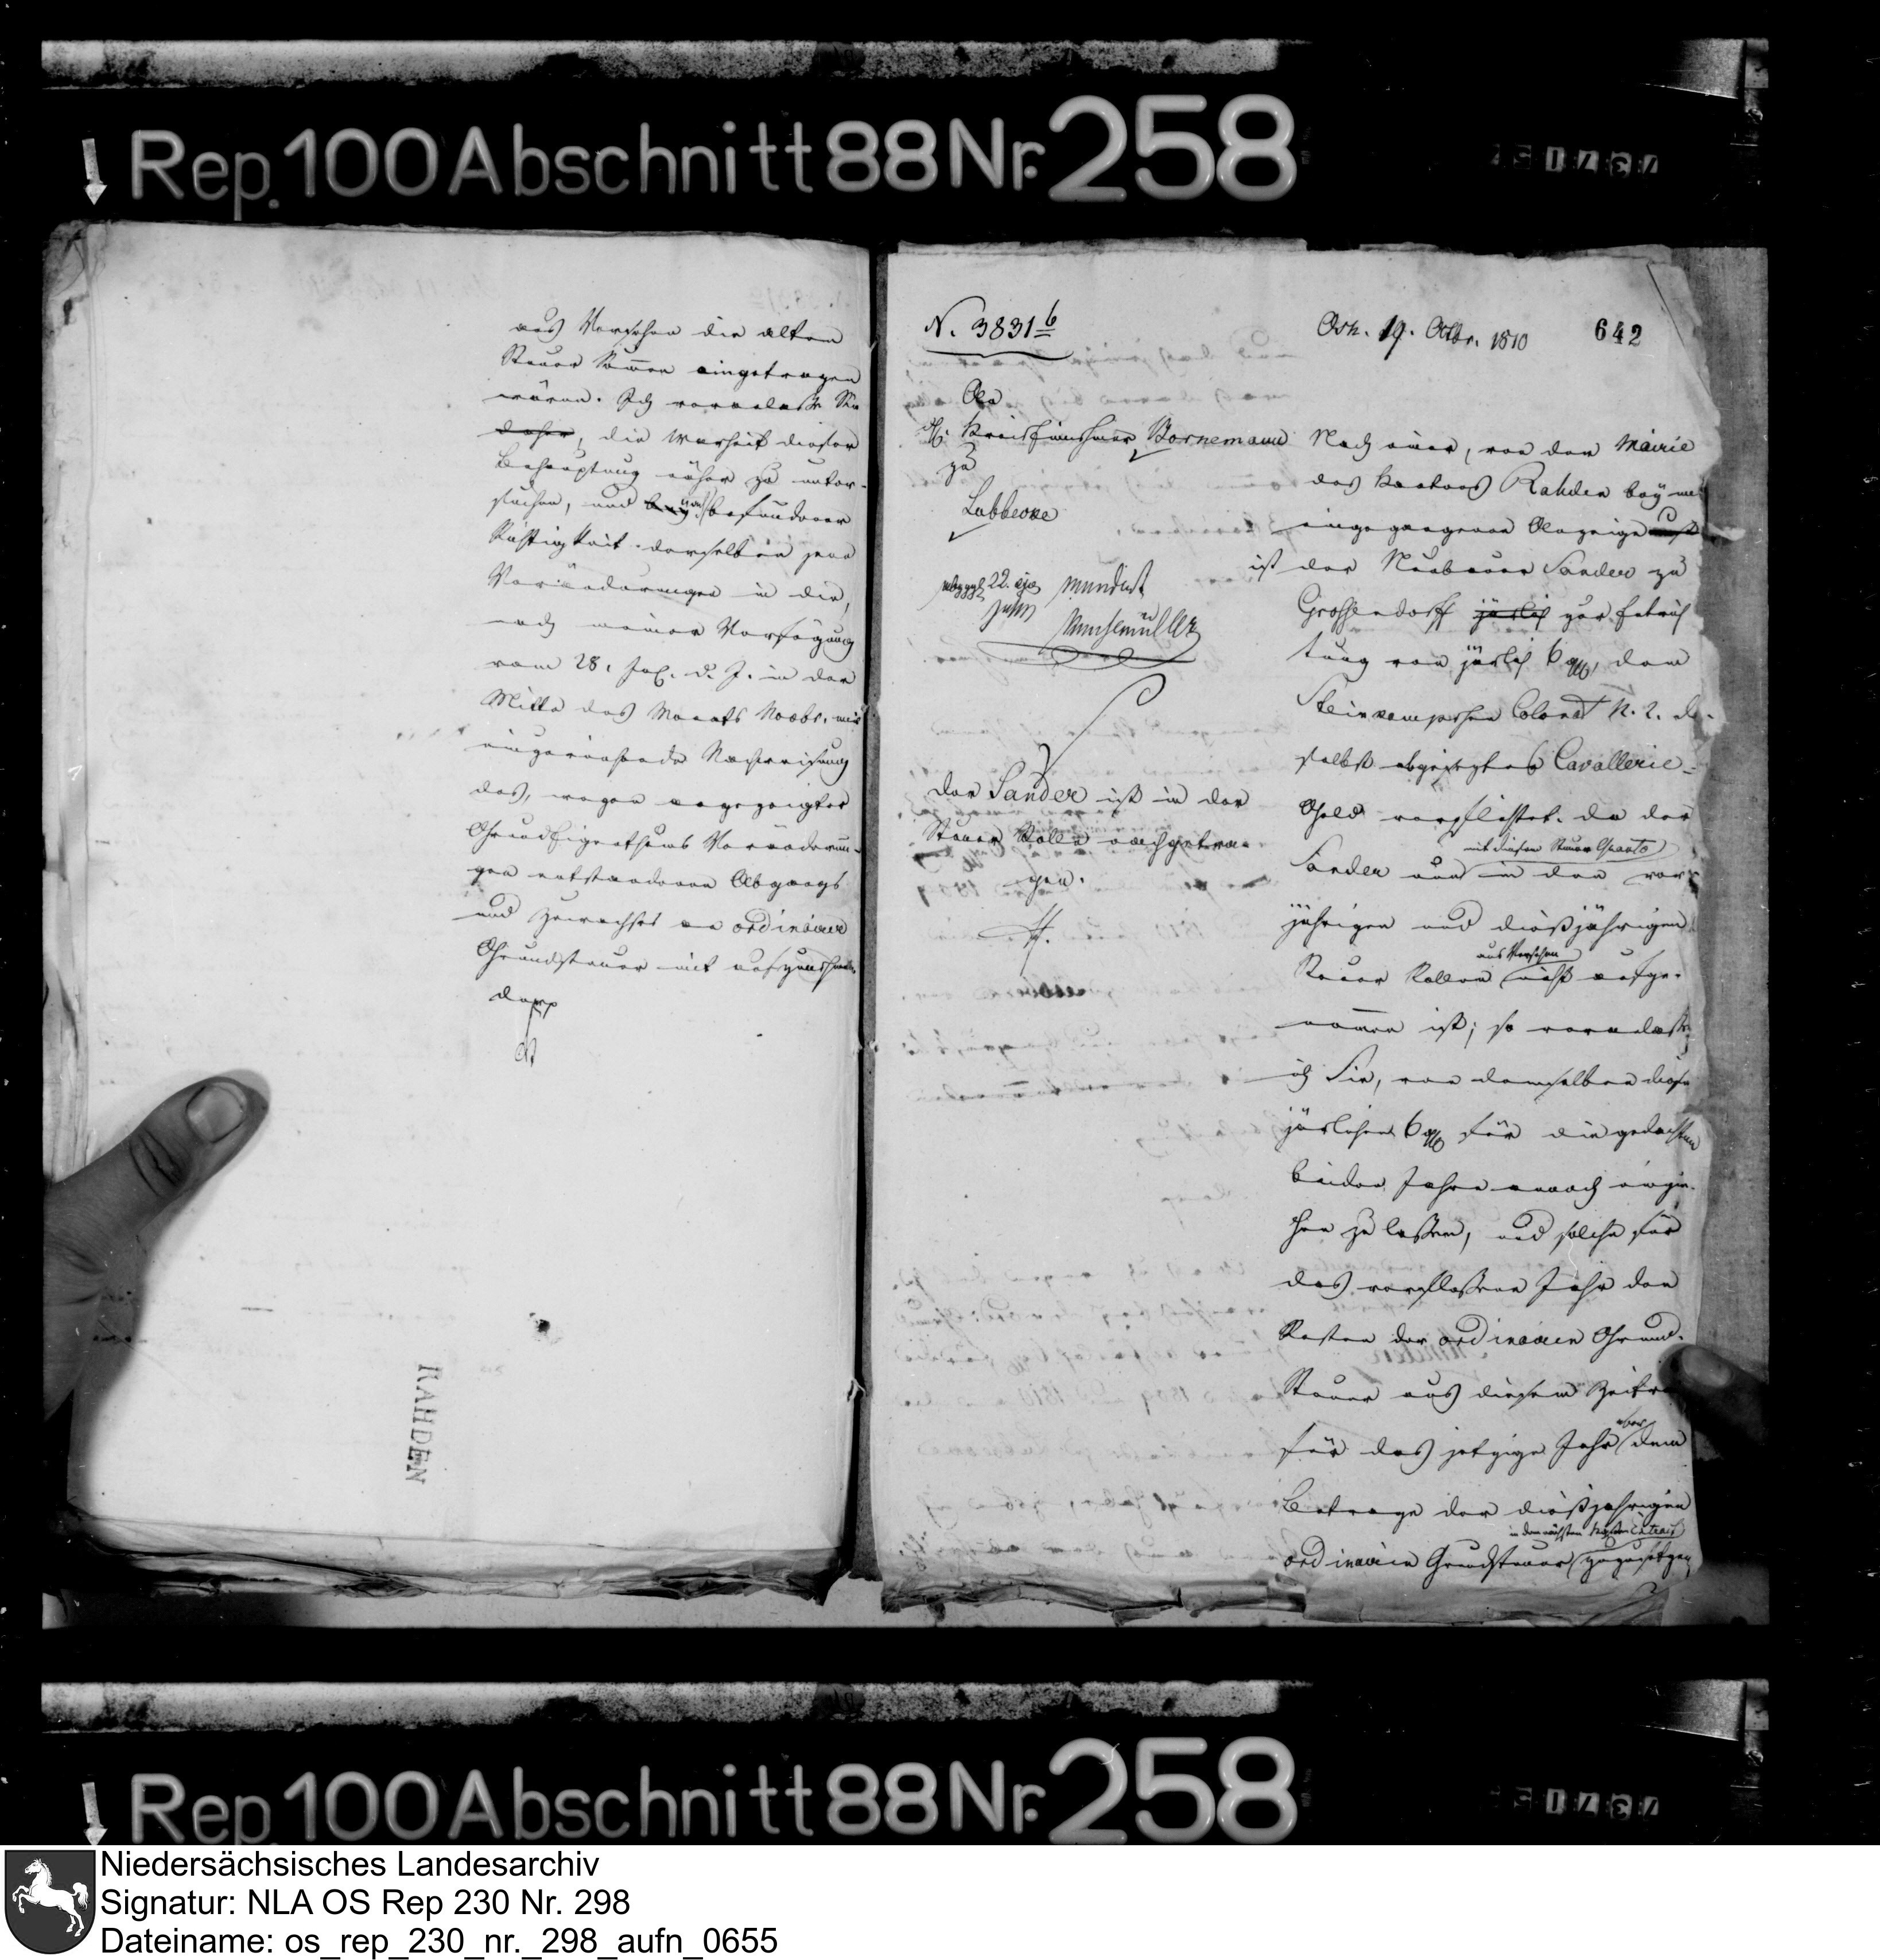 Rep. 100 Abschnitt 88 Nr. 258
aus Versehen die alten
Steuer Summen eingetragen
wären. Ich veranlaße Sie
daher, die Warheit dieser
Behauptung näher zu unter-
suchen, und bey nach befundener
Richtigkeit derselben jene
Veränderungen in die,
nach meiner Verfügung
vom 28. d. J. in der
Mitte des Monats Novbr. mir
einzureichende Nachweisung
des, wegen angezeigter
Grundeigenthums Veränderun-
gen entstandenen Abgangs
und Zuwachses an ordinairer
Grundsteuer mit aufzunehmen.
RAHDEN
N. 3831 b
Osn. 19. Octbr. 1810
642
An
H. Kreiseinnehmer Bornemann
zu
Lubbecke
22.
mundirt
Der Sander ist in der
Steuer Rolle nachgetra-
gen.
Nach einer, von der Mairie
des Kantons Rahden bey mir
eingegangenen Anzeige
ist der Neubauer Sander zu
Großendorff järlich zur Entrich
tung von järlich 6 dem
Steinkampschen Colonat N. 2. da-
selbst abgesetztes Cavallerie-
Geld verpflichtet. Da der
mit diesem Steuer Quanto
Sander nun in den vor-
jährigen und dießjährigen
aus Versehen
Steuer Rollen nicht aufge-
nommen ist; so veranlaße
ich Sie, von demselben diese
järlichen 6 für die gedachten
beiden Jahre annoch einzie-
hen zu lassen, und solche für
das verflossene Jahr den
Resten der ordinairen Grund-
Steuer aus diesem
aber
für das jetzige Jahr dem
Betrage der dießjährigen
in dem nächsten
ordinairen Grundsteuer zuzusetzen
Rep. 100 Abschnitt 88 Nr. 258
Niedersächsisches Landesarchiv
Signatur: NLA OS Rep 230 Nr. 298
Dateiname: os_rep_230_nr._298_aufn_0655